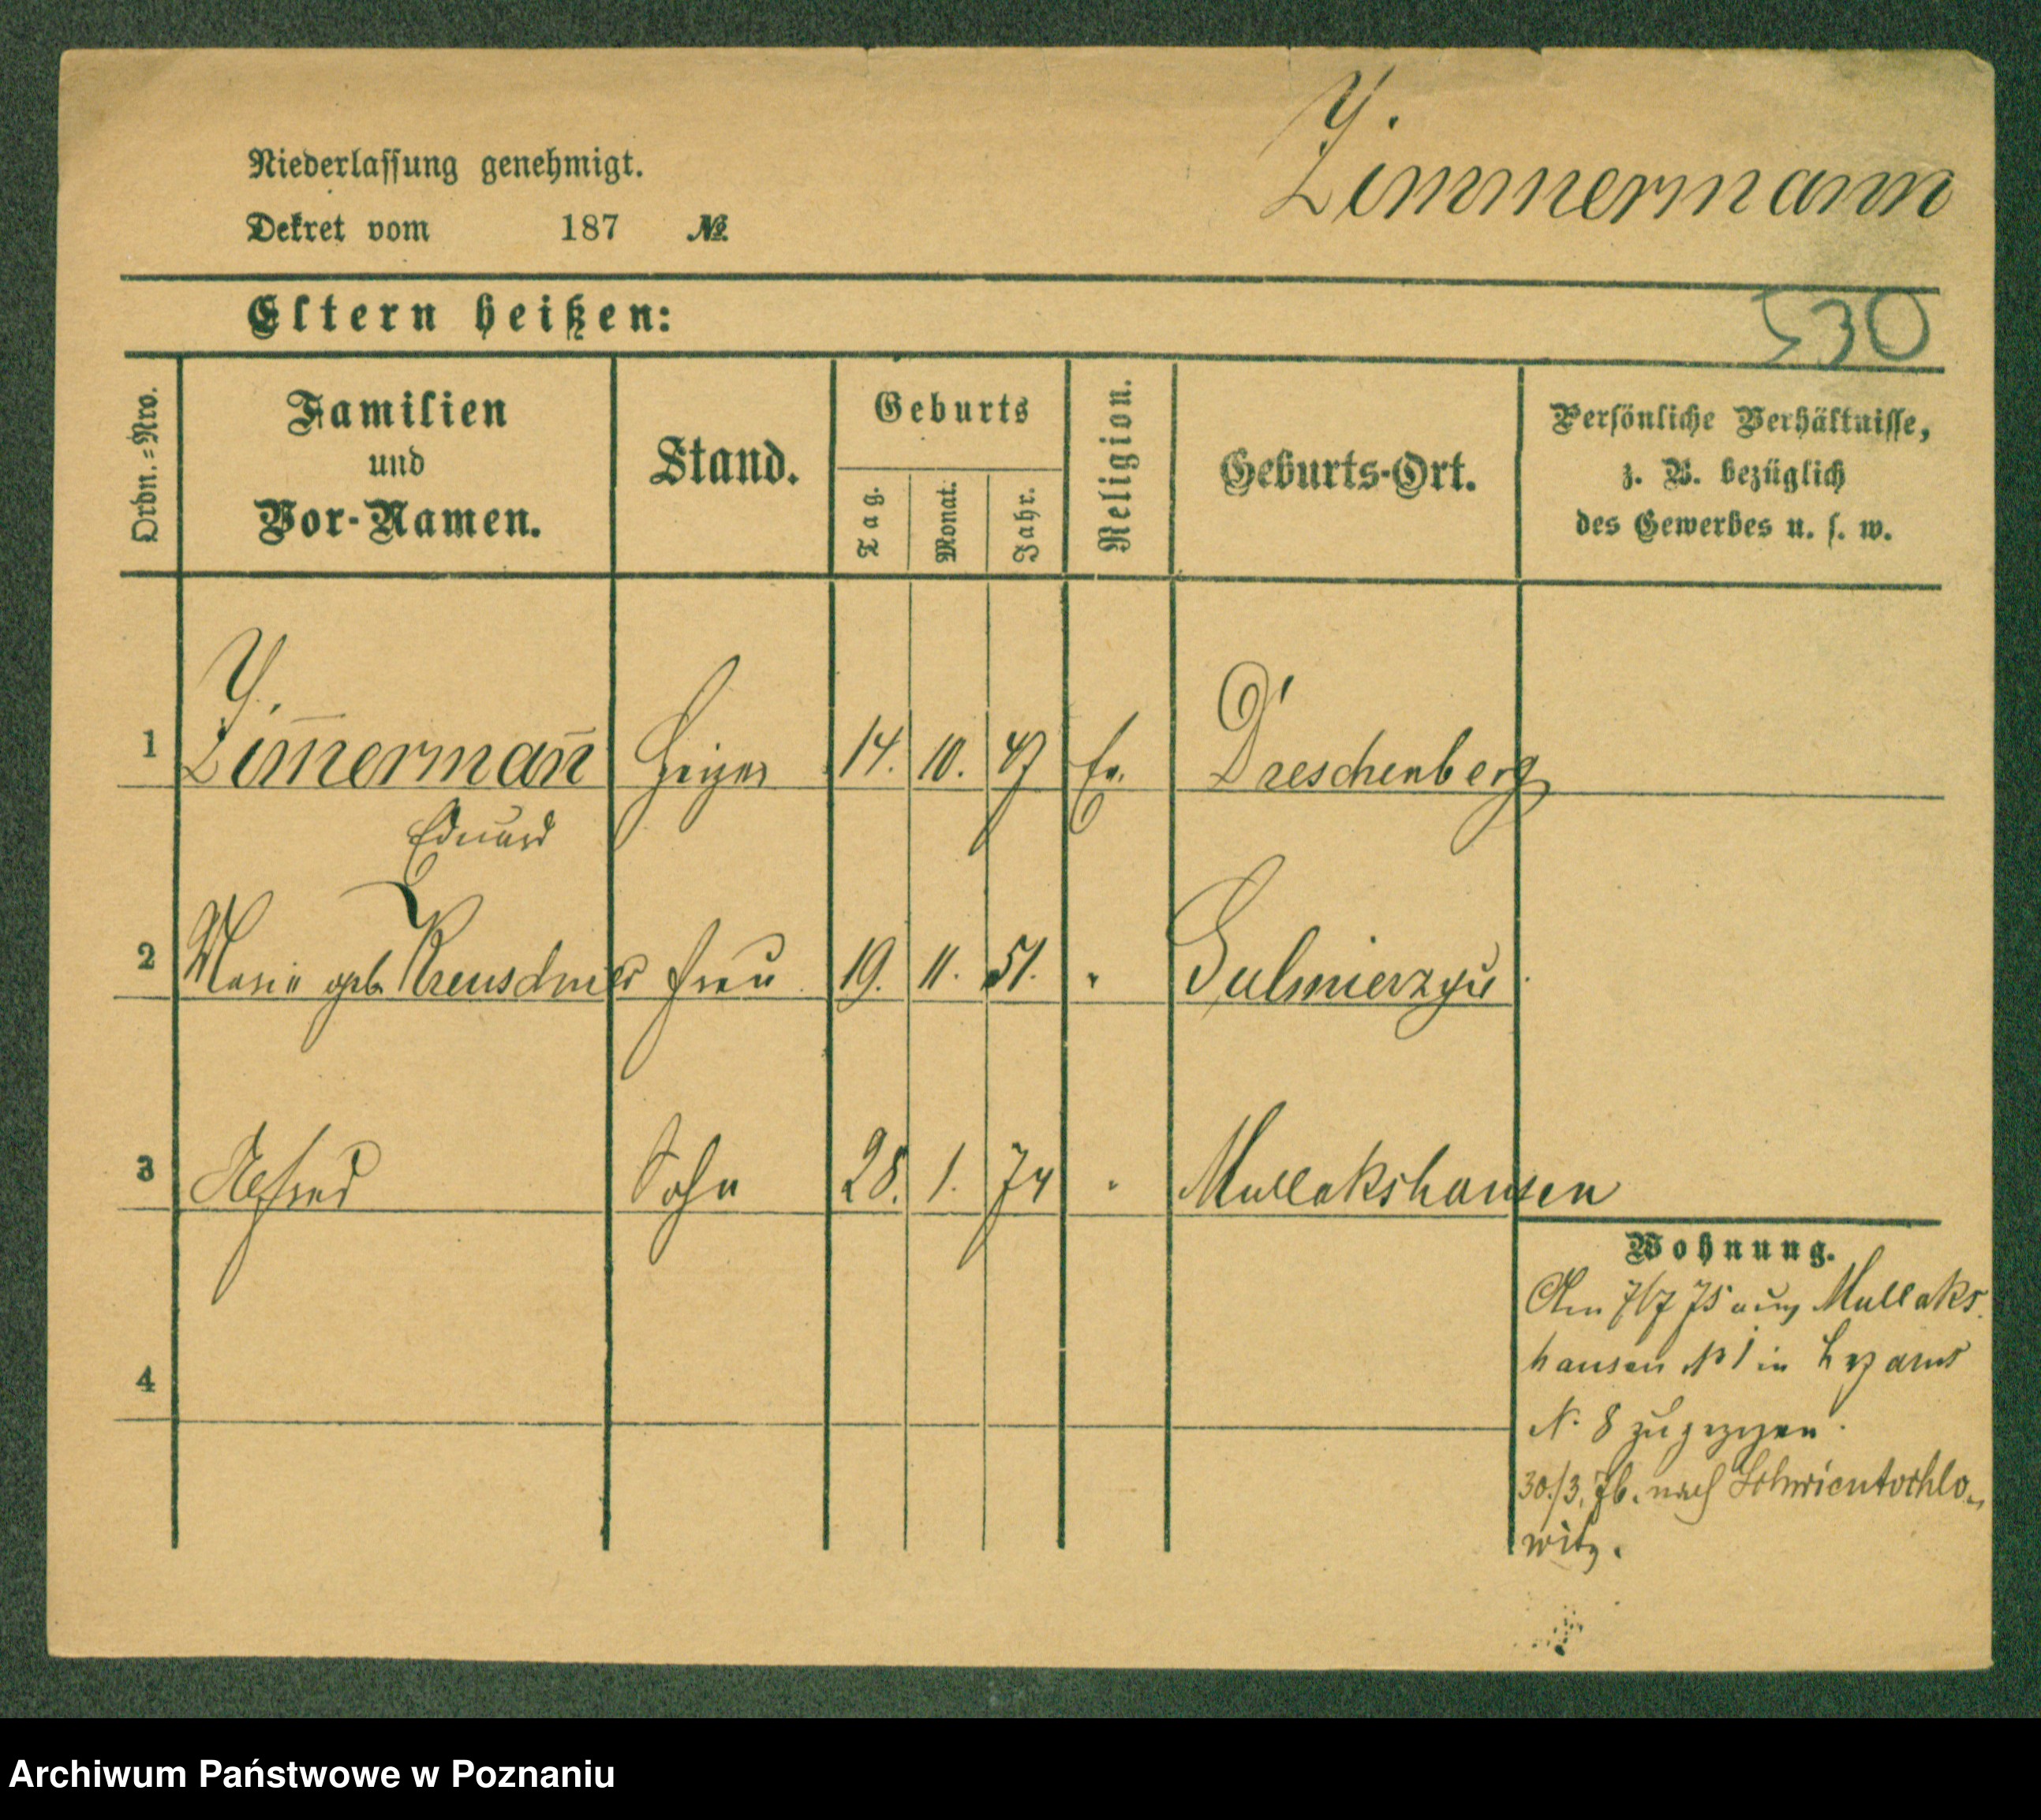 Zimmermann
Niederlassung genehmigt.
Dekret vom 187 №
Eltern heißen:
530
Ordn.=Nro.
Familien
und
Vor-Namen.
Stand.
Geburts
Tag.
Monat.
Jahr.
Religion.
Geburts-Ort.
Persönliche Verhältnisse,
z. B. bezüglich
des Gewerbes u. s. w.
1 Zim̅erman̅ Heizer 14. 10. 47 Ev. Dreschenberg
Eduard
2 Marie geb. Kreuschner Frau 19. 11. 51. " Sulmierzyce
3 Alfred Sohn 28. 1. 74 " Mullakshausen
4
Wohnung.
Am 7/7 75 aus Mullaks
hausen № 1 in Lazarus
N. 8 zugezogen.
30./3. 76. nach Schwientochlo-
witz.
Archiwum Państwowe w Poznaniu